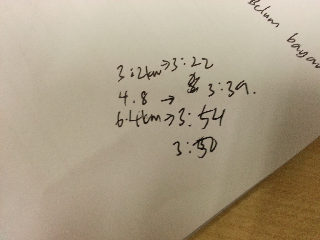 Belum bayar
3.2km→3:22
4.8 → 3:39.
6.4km→3:54
3:50